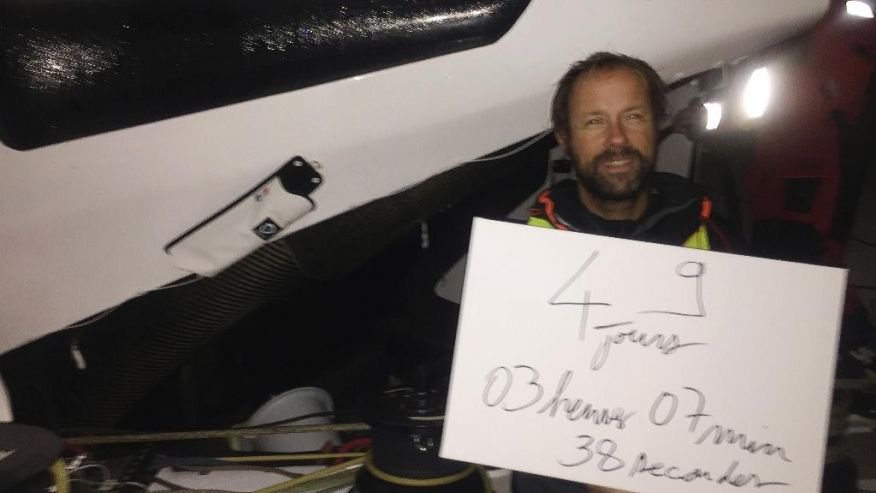 49
jours
03 heures 07 min
38 secondes